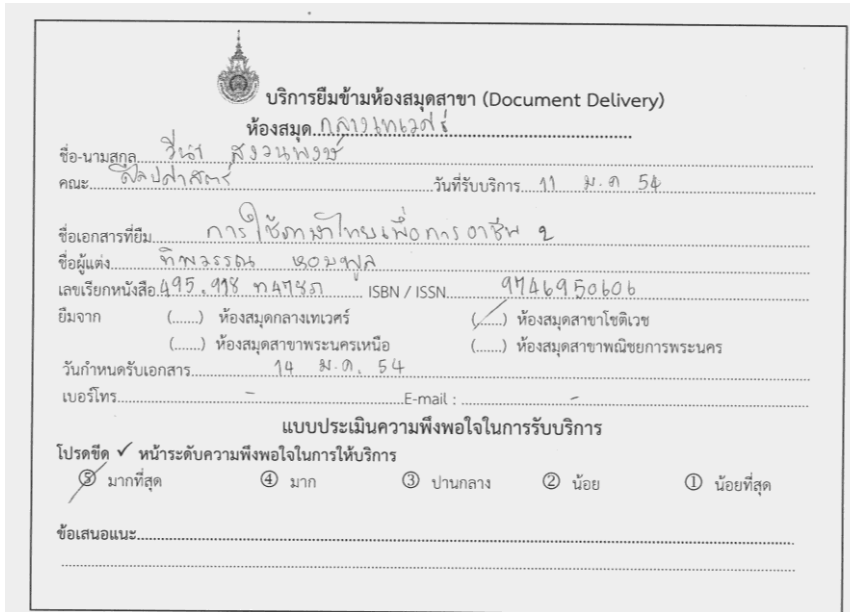 บริการยืมข้ามห้องสมุดสาขา (Document Delivery)
ห้องสมุด กลางเทเวศร์
ชื่อ-นามสกุล สงวนพงษ์
คณะ ศิลปศาสตร์ วันที่รับบริการ 11 ม.ค 54
ชื่อเอกสารที่ยืม การใช้ภาษาไทยเพื่อการอาชีพ 2
ชื่อผู้แต่ง ทิพวรรณ หอมพูล
เลขเรียกหนังสือ 495.918 ISBN / ISSN 9746950606
ยืมจาก (......) ห้องสมุดกลางเทเวศร์ (../...) ห้องสมุดสาขาโชติเวช
(......) ห้องสมุดสาขาพระนครเหนือ (......) ห้องสมุดสาขาพณิชยการพระนคร
วันกำหนดรับเอกสาร 14 ม.ค. 54
เบอร์โทร - E-mail : -
แบบประเมินความพึงพอใจในการรับบริการ
โปรดขีด ✓ หน้าระดับความพึงพอใจในการให้บริการ
⑤ มากที่สุด ④ มาก ③ ปานกลาง ② น้อย ① น้อยที่สุด
ข้อเสนอแนะ